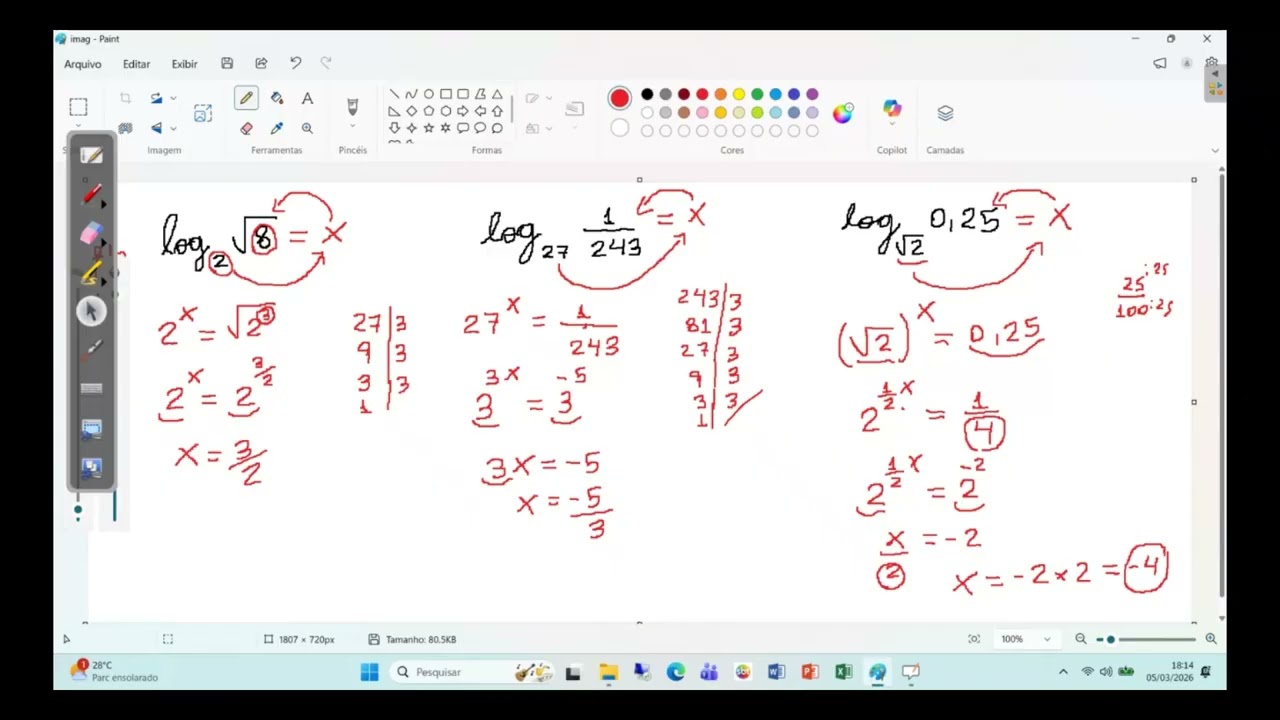 imag - Paint
Arquivo Editar Exibir
Imagem Ferramentas Pincéis Formas Cores Copilot Camadas
log₂ √8 = x
2^x = √2³
2^x = 2^(3/2)
x = 3/2
27 | 3
9 | 3
3 | 3
1
log₂₇ 1/243 = x
27^x = 1/243
3^(3x) = 3^(-5)
3x = -5
x = -5/3
243 | 3
81 | 3
27 | 3
9 | 3
3 | 3
1
log_√2 0,25 = x
(√2)^x = 0,25
2^(1/2·x) = 1/4
2^(1/2 x) = 2^(-2)
x/2 = -2
x = -2 × 2 = -4
25 :25
100 :25
1807 × 720px Tamanho: 80.5KB 100%
1 28°C
Parc ensolarado
Pesquisar
18:14
05/03/2026